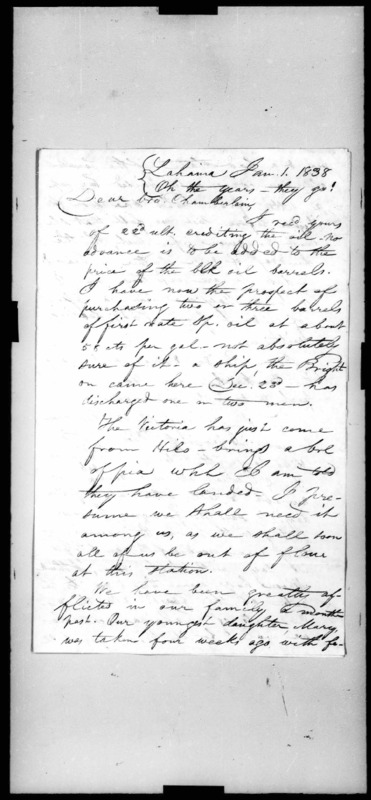 Lahaina Jan. 1. 1838
Oh the years - they go!
Dear bro Chamberlain,
I recd yours
of 22d ult. crediting the oil - no
advance is to be added to the
price of the blk oil barrels.
I have now the prospect of
purchasing two or three barrels
of first rate Sp. oil at about
50 cts per gal - not absolutely
sure of it - a ship, the Bright
on came here Dec. 23d - has
discharged one or two men.
The Victoria has just come
from Hilo - brings a bbl
of pia whh I am told
they have landed. I pre-
sume we shall need it
among us, as we shall soon
all of us be out of flour
at this station.
We have been greatly af-
flicted in our family a month
past. Our youngest daughter, Mary,
was taken four weeks ago with fe-